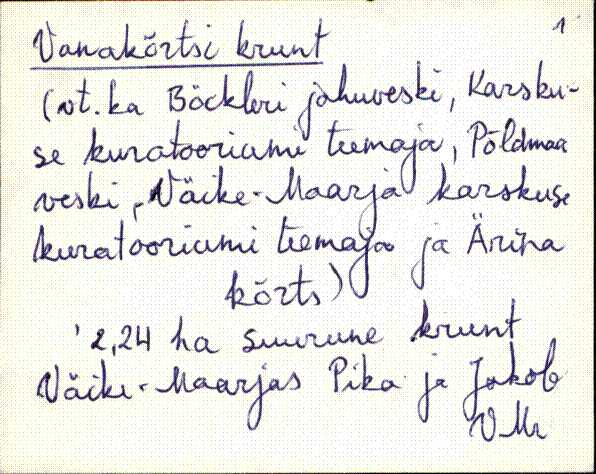 1
Vanakõrtsi krunt
(vt. ka Böckleri jahuveski, Karsku-
se kuratooriumi teemaja, Põldmaa
veski, Väike-Maarja karskuse
kuratooriumi teemaja ja Äriña
kõrts)
2,24 ha suurune krunt
Väike-Maarjas Pika ja Jakob
V. Mr